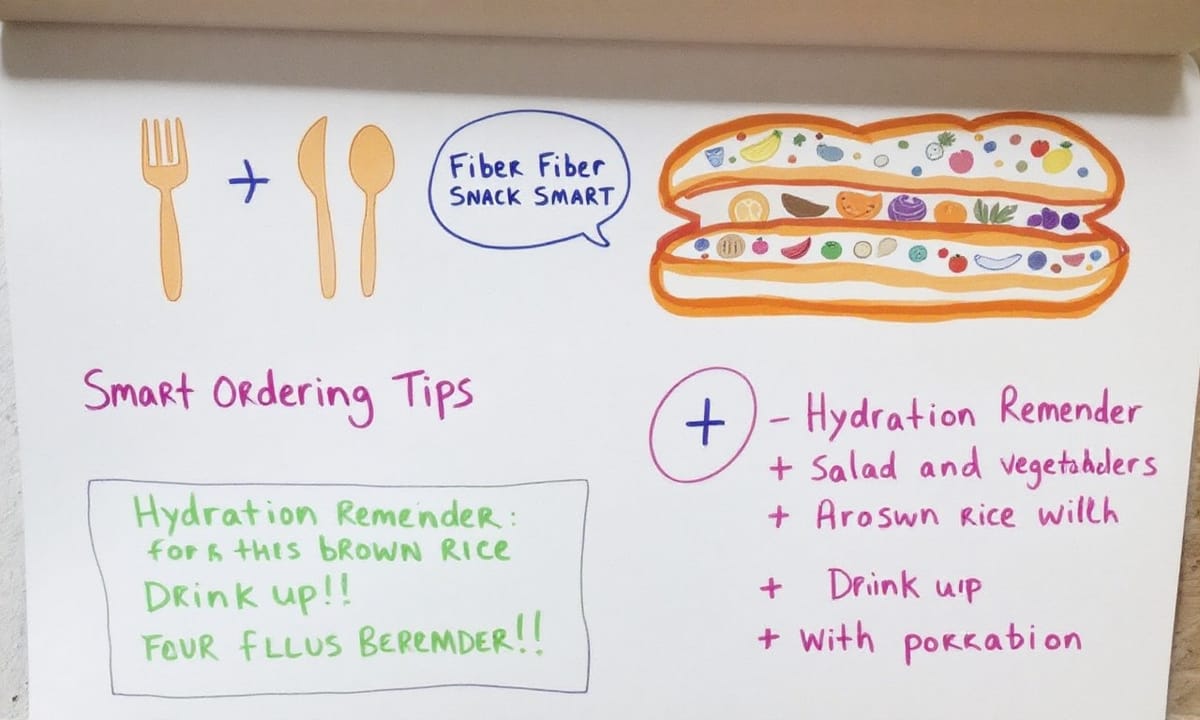 +
Fiber Fiber
SNACK SMART
Smart Ordering Tips
Hydration Remender:
for this brown rice
Drink up!!
Four fllus Beremder!!
+ - Hydration Remender
+ Salad and
+ Aroswn Rice
+ Driink uip
+ with pokkabion